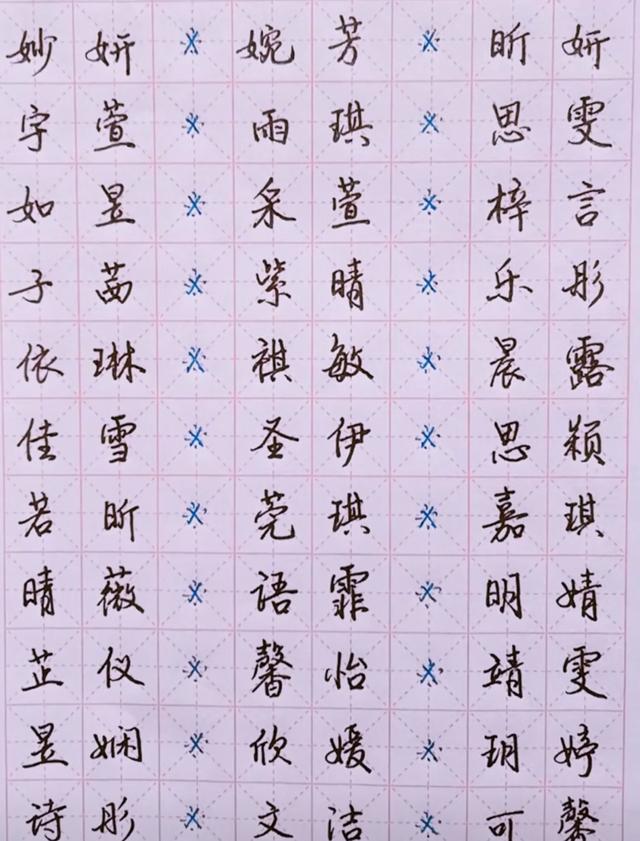 妙妍 * 婉芳 * 昕妍
字萱 * 雨琪 * 思雯
如昱 * 采萱 * 梓言
子茜 * 紫晴 * 乐彤
依琳 * 祺敏 * 晨露
佳雪 * 圣伊 * 思颖
若昕 * 莞琪 * 嘉琪
晴薇 * 语霏 * 明婧
芷仪 * 馨怡 * 靖雯
昱娴 * 欣媛 * 玥婷
诗彤 * 文洁 * 可馨